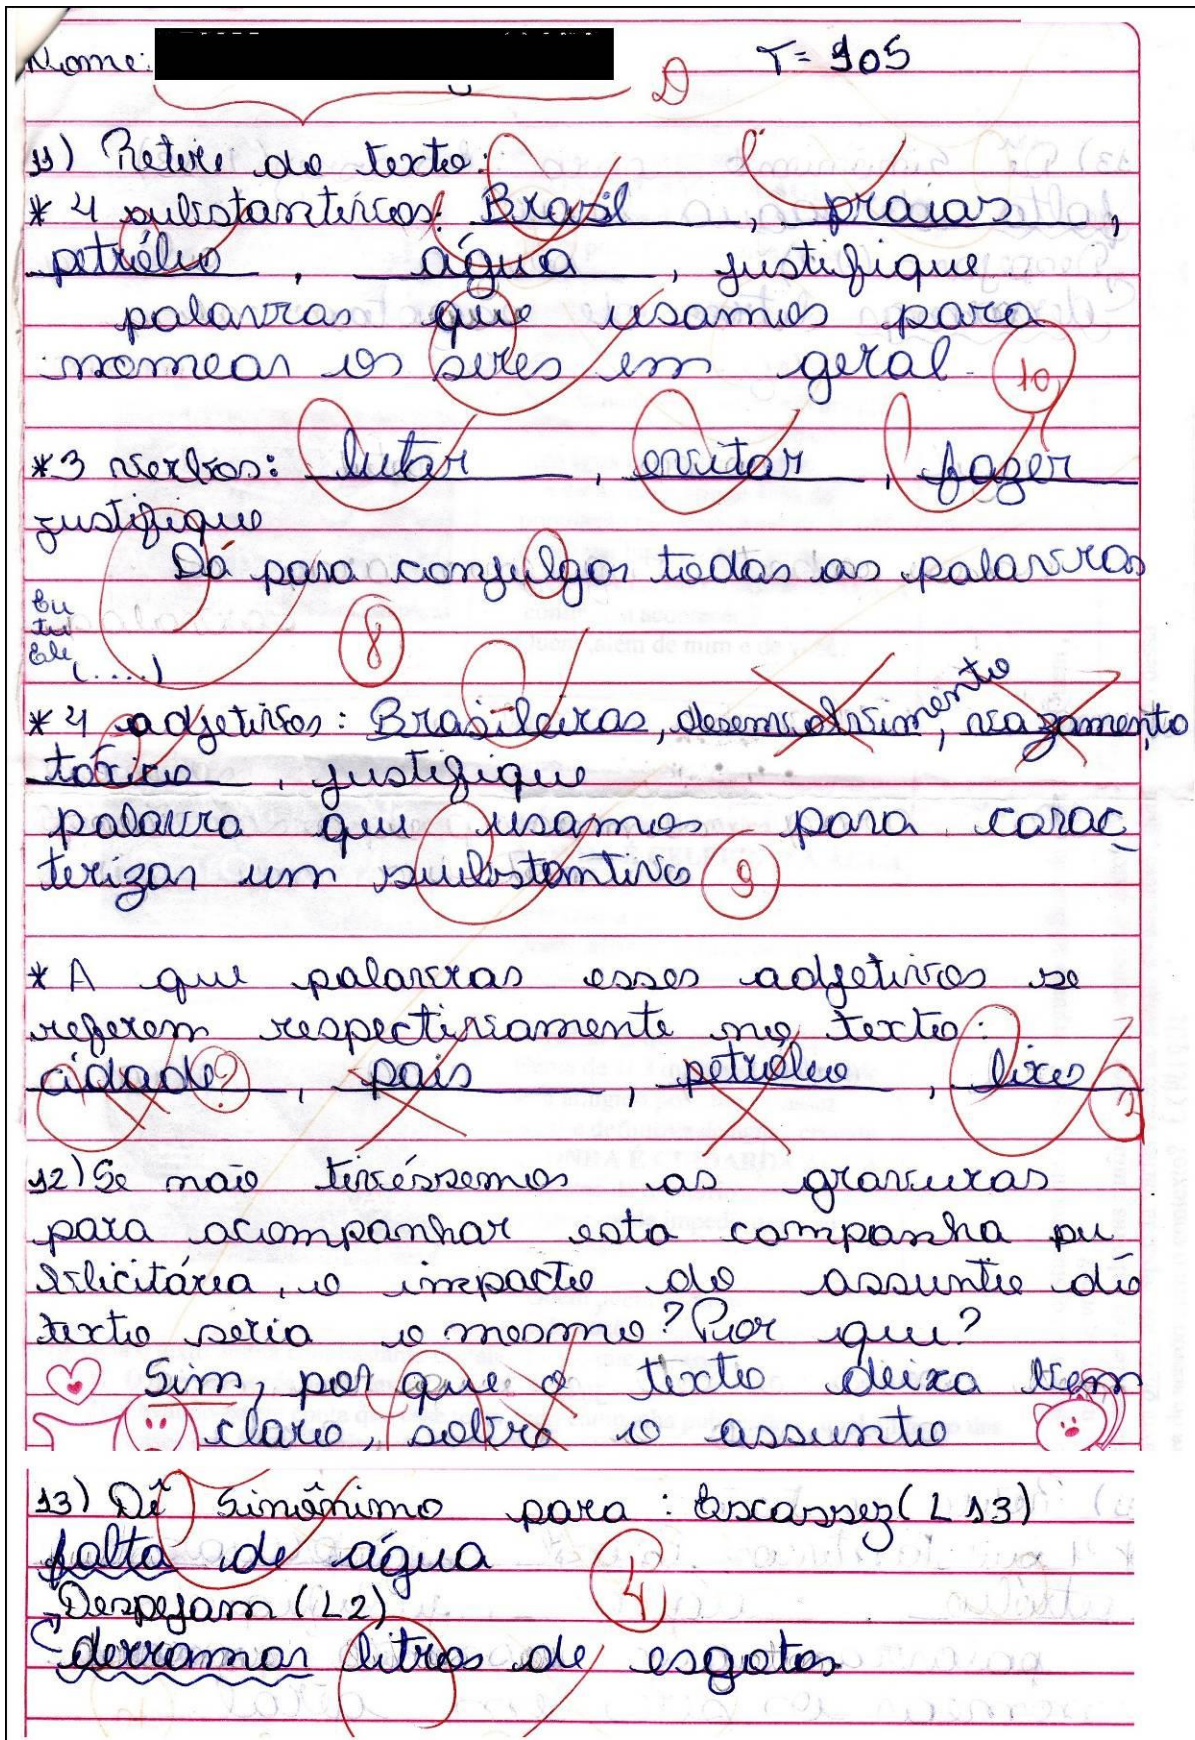 Nome:
T= 905
D
11) Retire do texto:
* 4 substantivos: Brasil, praias,
petróleo, água, justifique
palavras que usamos para
nomear os seres em geral.
10
* 3 verbos: lutar, evitar, fazer
justifique
Dá para conjulgar todas as palavras
Eu
tu
Ele
(.....)
8
* 4 adjetivos: Brasileiras, desenvolvimento, vazamento
tóxico, justifique
palavra que usamos para carac
terizar um substantivo
9
* A que palavras esses adjetivos se
referem respectivamente no texto:
cidade?, país, petróleo, lixo
12) Se não tivéssemos as gravuras
para acompanhar esta campanha pu
blicitária, o impacto do assunto do
texto seria o mesmo? Por que?
Sim, por que o texto deixa bem
claro, sobre o assunto
13) Dê sinônimo para: Escassez (L 13)
falta de água
4
Despejam (L2)
derramar litros de esgotos